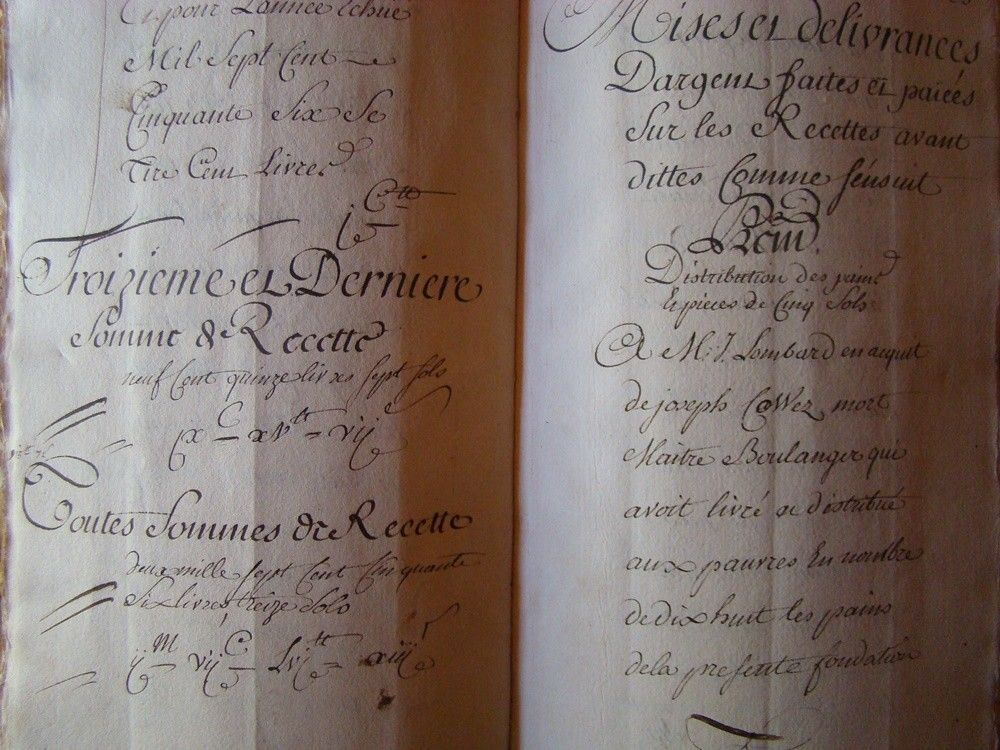 Et pour L'année Echue
Mil Sept Cent
Cinquante Six Se
Tire Cent Livres
C tt
Troizieme et Derniere
Somme de Recette
neuf Cent quinze livres Sept Solo
ix C xv tt vij
Toutes Sommes de Recette
deux mille Sept Cent Cinquante
Six livres treize Solo
ij M vij C Lvj tt xiij
Mises et delivrances
Dargent faites et paieés
Sur les Recettes avant
dittes Comme sénsuit
Distribution des pains
Et pieces de Cinq Sols
A M: J. Lombard en acquit
de joseph CaWez mort
Maitre Boulanger qui
avoit livré et distribué
aux pauvres En nombre
de dix huit les pains
dela presente fondation